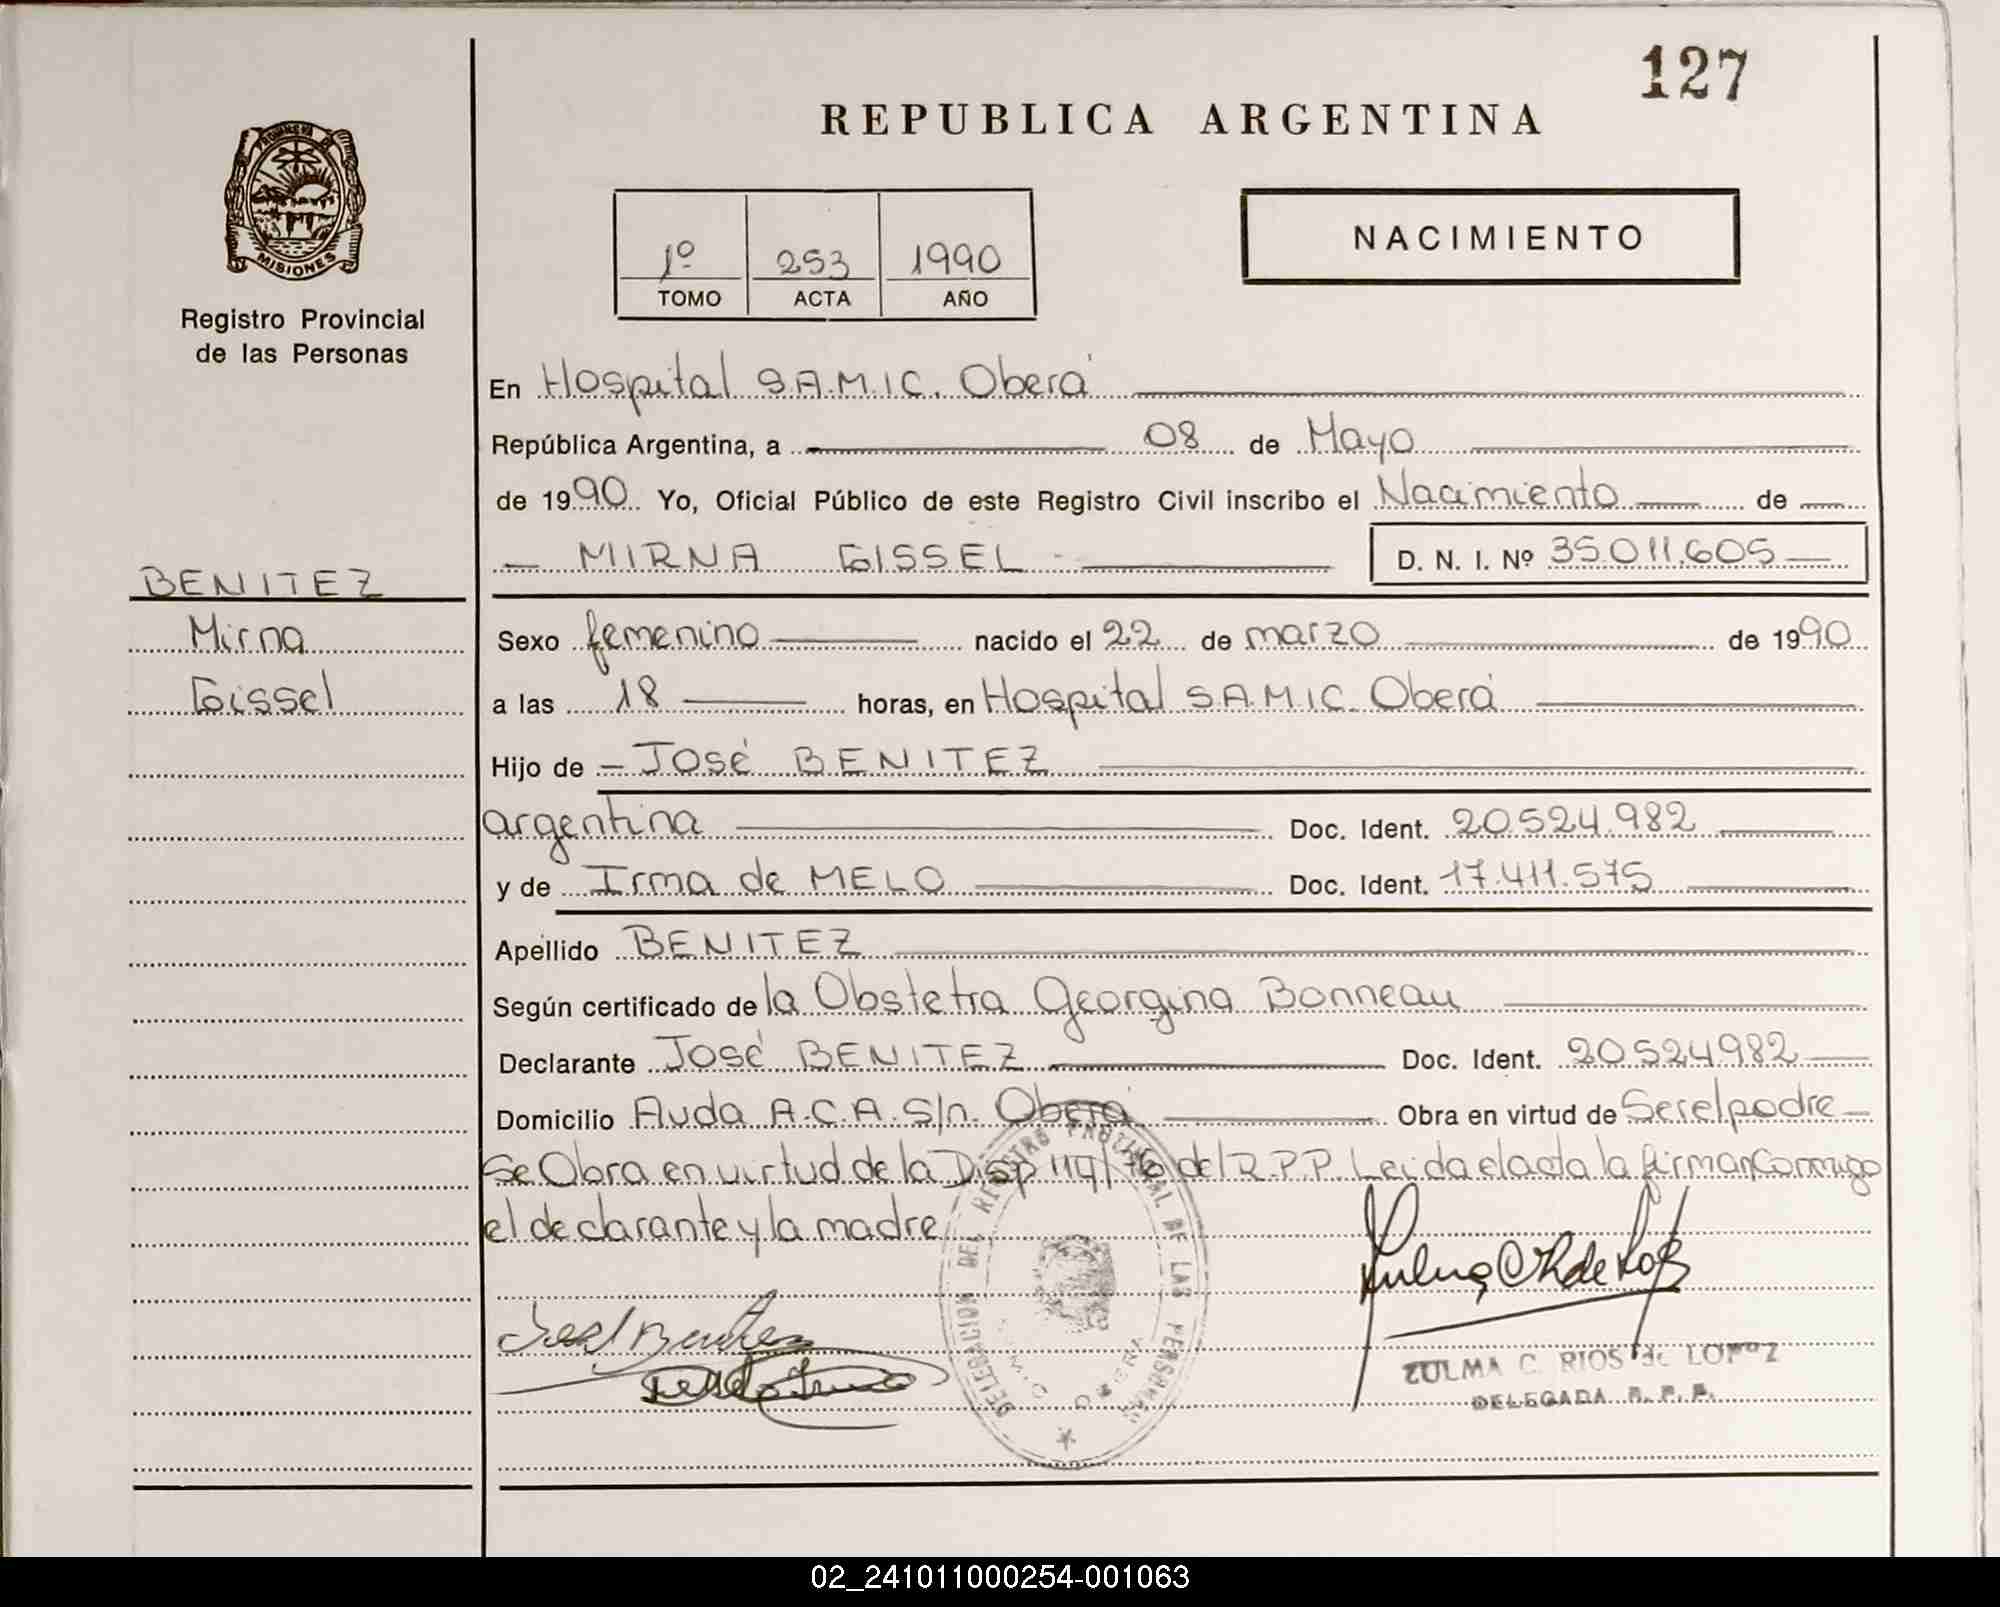 127
REPUBLICA ARGENTINA
PROVINCIA
MISIONES
Registro Provincial
de las Personas
NACIMIENTO
1º 253 1990
TOMO ACTA AÑO
En Hospital S.A.M.I.C. Oberá
República Argentina, a 08 de Mayo
de 1990 Yo, Oficial Público de este Registro Civil inscribo el Nacimiento de
MIRNA GISSEL D. N. I. Nº 35.011.605
BENITEZ
Mirna
Gissel
Sexo femenino nacido el 22 de marzo de 1990
a las 18 horas, en Hospital S.A.M.I.C. Oberá
Hijo de José BENITEZ
argentina Doc. Ident. 20.524.982
y de Irma de MELO Doc. Ident. 17.411.575
Apellido BENITEZ
Según certificado de la Obstetra Georgina Bonneau
Declarante José BENITEZ Doc. Ident. 20.524.982
Domicilio Avda A.C.A. S/n. Oberá Obra en virtud de Ser el padre
Se Obra en virtud de la Disp 119/76 del R.P.P. Leida el acta la firman Conmigo
el declarante y la madre
DELEGACION DEL REGISTRO PROVINCIAL DE LAS PERSONAS
ZULMA C. RIOS de LOPEZ
DELEGADA R. P. P.
02_241011000254-001063